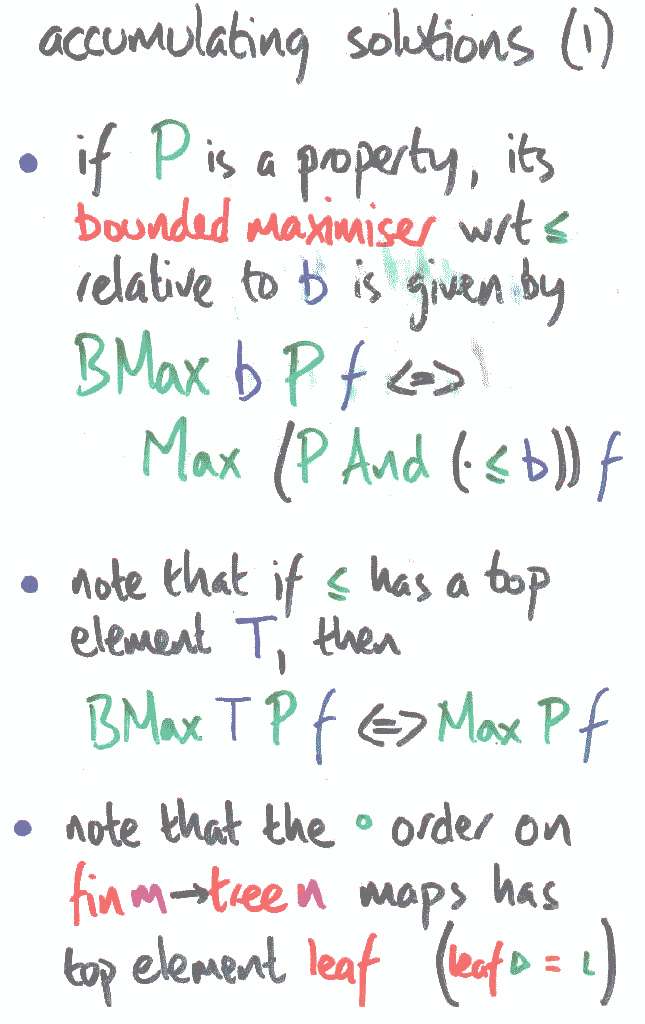 accumulating solutions (1)
• if P is a property, its
bounded maximiser wrt ≤
relative to b is given by
BMax b P f <=>
Max (P And (· ≤ b)) f
• note that if ≤ has a top
element T, then
BMax T P f <=> Max P f
• note that the ∘ order on
fin m → tree n maps has
top element leaf (leaf ▷ = ι)